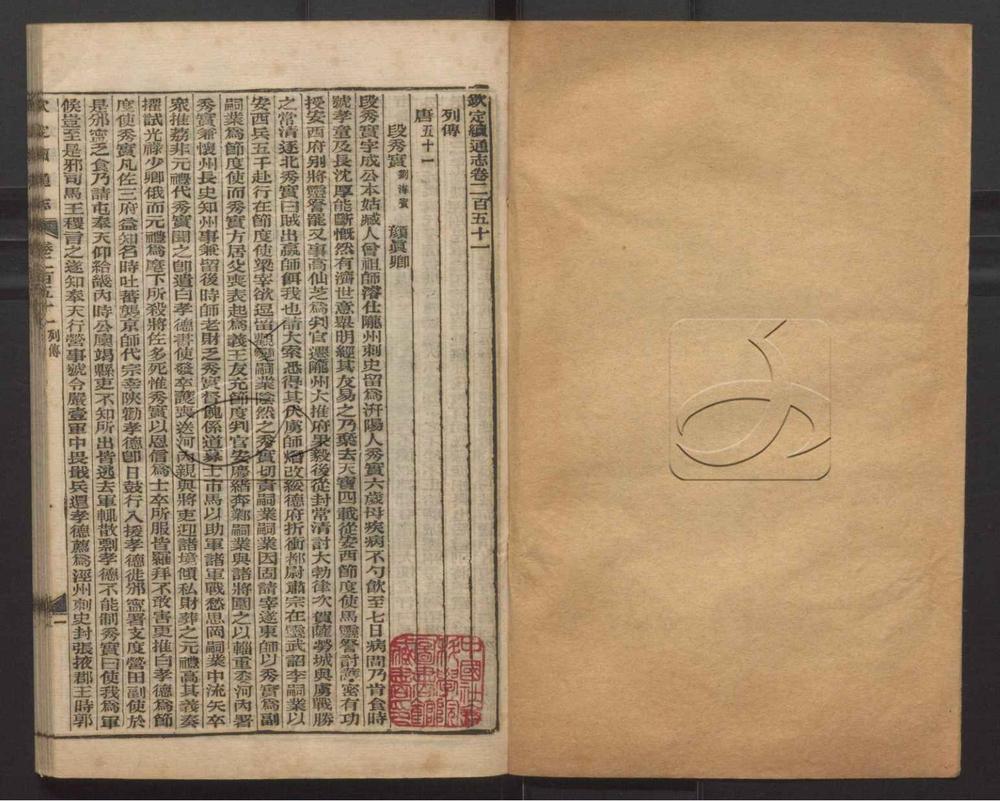 欽定續通志卷二百五十一
列傳
唐五十一
段秀實劉海賓 顏眞卿
段秀實字成公本姑臧人曾祖師濬仕隴州刺史留爲汧陽人秀實六歲母疾病不勺飲至七日病間乃肯食時
號孝童及長沈厚能斷慨然有濟世意舉明經其友易之乃棄去天寶四載從安西節度使馬靈詧討護蜜有功
授安西府別將靈詧罷又事高仙芝爲判官遷隴州大推府果毅後從封常清討大勃律次賀薩勞城與虜戰勝
之常清逐北秀實曰賊出羸師餌我也請大索悉得其伏虜師熸改綏德府折衝都尉肅宗在靈武詔李嗣業以
安西兵五千赴行在節度使梁宰欲逗留觀變嗣業陰然之秀實切責嗣業嗣業因固請宰遂東師以秀實爲副
嗣業爲節度使而秀實方居父喪表起爲義王友充節度判官安慶緒奔鄴嗣業與諸將圍之以輜重委河內署
秀實兼懷州長史知州事兼留後時師老財乏秀實督餽係道募士市馬以助軍諸軍戰愁思岡嗣業中流矢卒
衆推荔非元禮代秀實聞之卽遣白孝德書使發卒護喪送河內親與將吏迎諸境傾私財葬之元禮高其義奏
擢試光祿少卿俄而元禮爲麾下所殺將佐多死惟秀實以恩信爲士卒所服皆羅拜不敢害更推白孝德爲節
度使秀實凡佐三府益知名時吐蕃襲京師代宗幸陝勸孝德卽日鼓行入援孝德徙邠寧署支度營田副使於
是邠寧乏食乃請屯奉天仰給畿內時公廩竭縣吏不知所出皆逃去軍輒散剽孝德不能制秀實曰使我爲軍
候豈至是邪司馬王稷言之遂知奉天行營事號令嚴壹軍中畏戢兵還孝德薦爲涇州刺史封張掖郡王時郭
欽定續通志 卷二百五十一 列傳 一